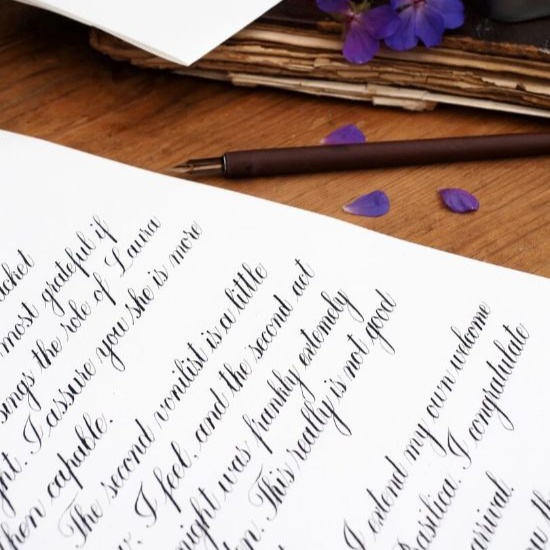 most grateful if
sings the role of Laura
I assure you she is more
then capable.
The second vonilist is a little
I feel, and the second act
night was frankly extemely
This really is not good
I extend my own welcome
Basilica. I congratulate
arrival.